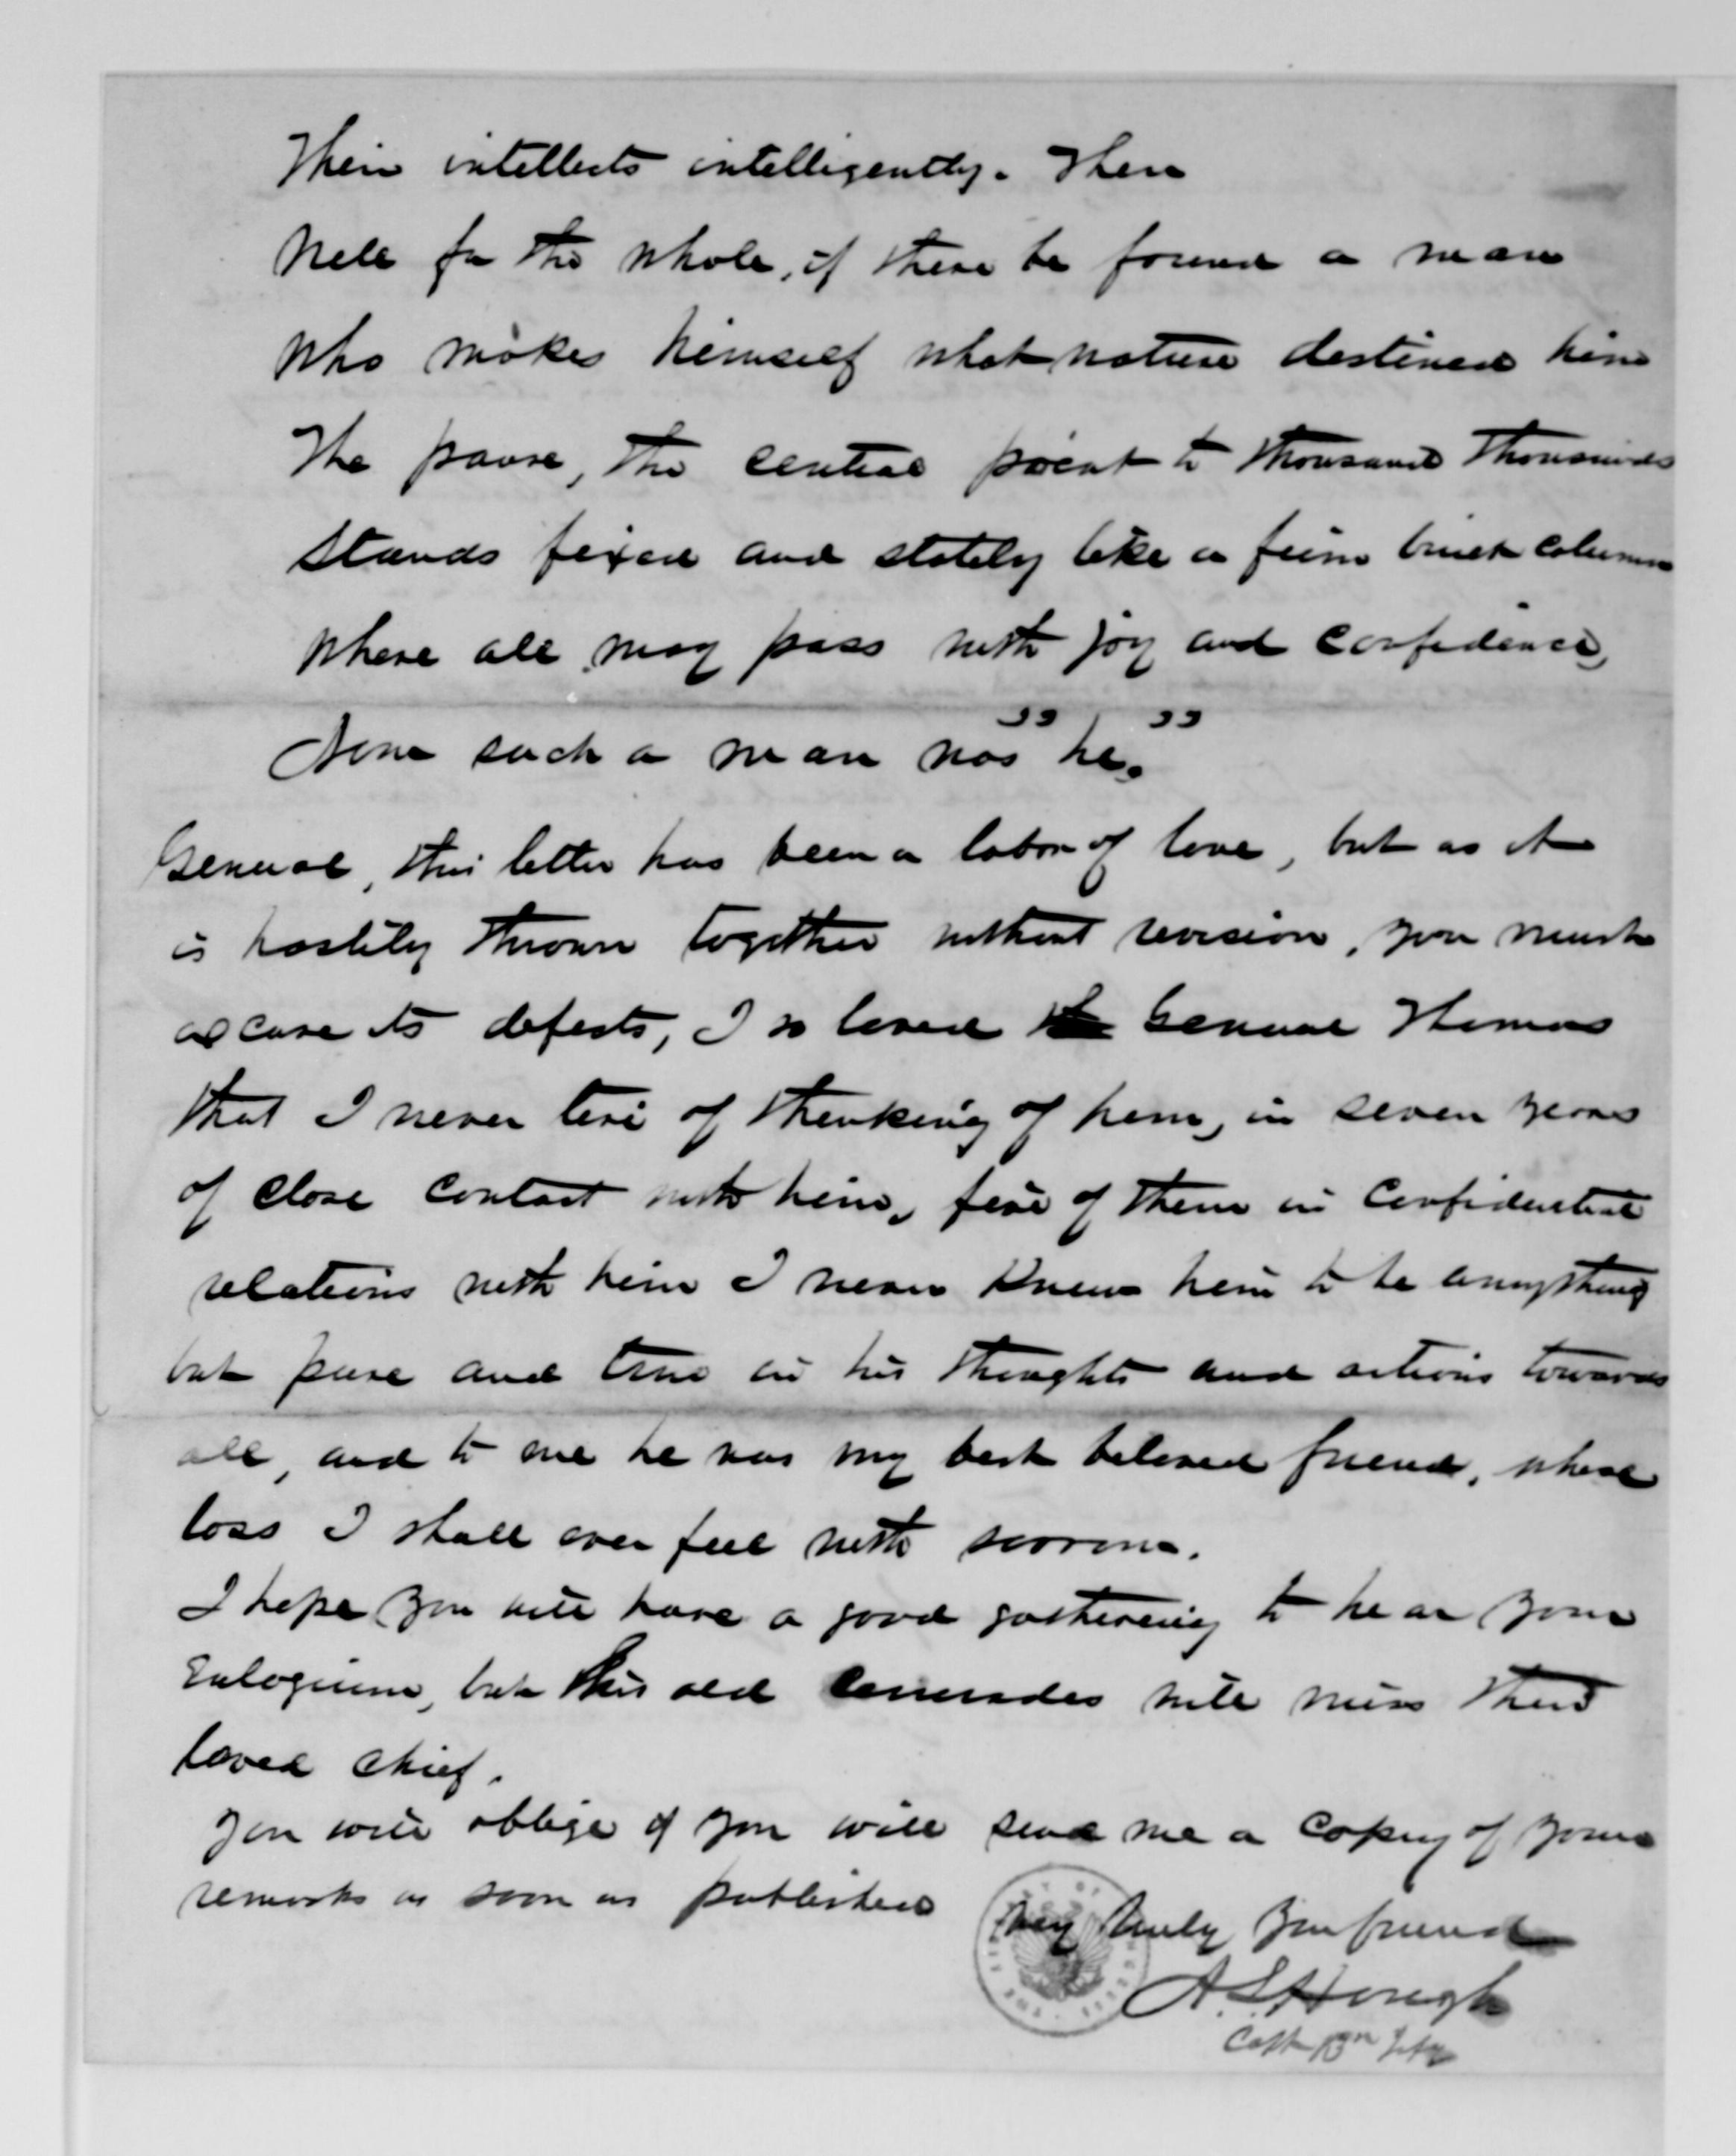 Their intellects intelligently. Then
Well for the whole, if there be found a man
Who makes himself what nature destined him
The pause, the central point to thousand thousands
Stands fixed and stately like a firm built column
Where all may pass with joy and confidence,
Now such a man was he."
General, this letter has been a labor of love, but as it
is hastily thrown together without revision, you must
excuse its defects, I so loved General Thomas
that I never tire of thinking of him, in seven years
of close contact with him, five of them in confidential
relations with him I never knew him to be anything
but pure and true in his thoughts and actions towards
all, and to me he was my best beloved friend, whose
loss I shall ever feel with sorrow.
I hope you will have a good gathering to hear your
Eulogium, but his old comrades will miss their
loved chief.
You will oblige if you will send me a copy of your
remarks as soon as published
Very truly your friend
A. S. Hough
Capt 13th Infy